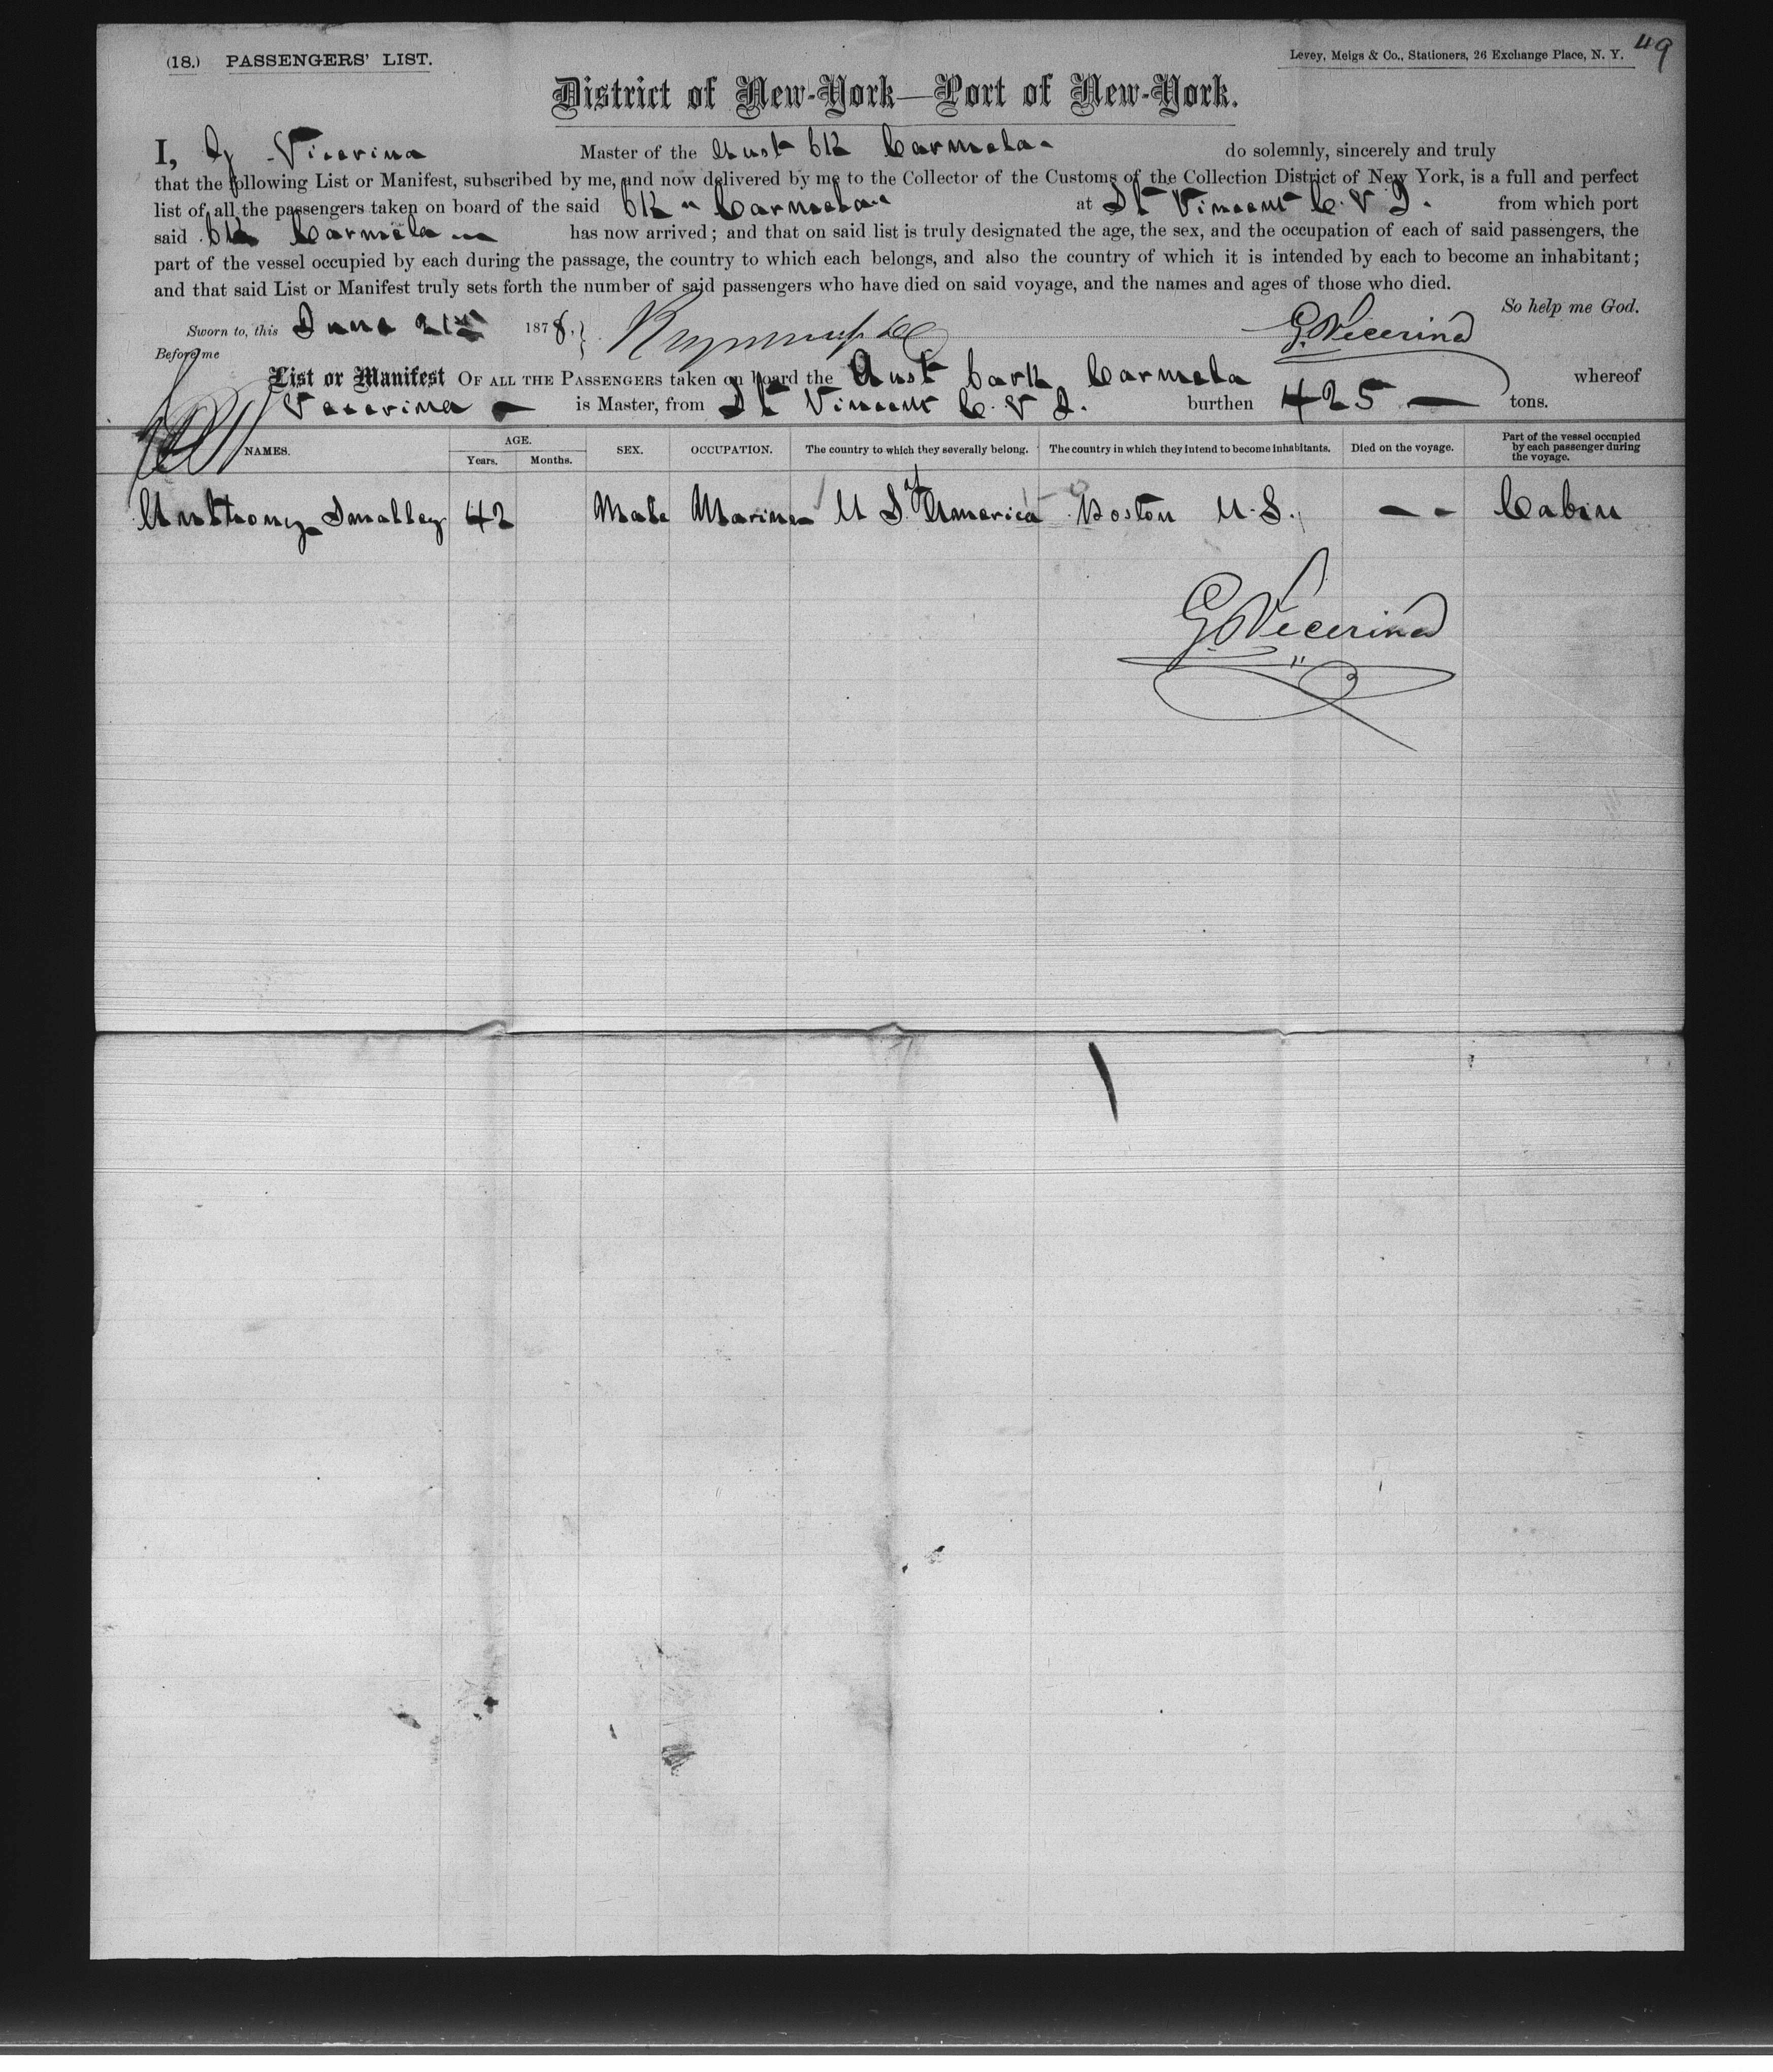 49
(18.) PASSENGERS' LIST. Levey, Meigs & Co., Stationers, 26 Exchange Place, N. Y.
District of New-York—Port of New-York.
I, G Vicerina Master of the Aust bk Carmela do solemnly, sincerely and truly
that the following List or Manifest, subscribed by me, and now delivered by me to the Collector of the Customs of the Collection District of New York, is a full and perfect
list of all the passengers taken on board of the said bk " Carmela" at St Vincent C. V I. from which port
said bk Carmela has now arrived; and that on said list is truly designated the age, the sex, and the occupation of each of said passengers, the
part of the vessel occupied by each during the passage, the country to which each belongs, and also the country of which it is intended by each to become an inhabitant;
and that said List or Manifest truly sets forth the number of said passengers who have died on said voyage, and the names and ages of those who died.
So help me God.
Sworn to, this June 21st 1878. G. Vicerina
Before me
List or Manifest OF ALL THE PASSENGERS taken on board the Aust bark Carmela whereof
Vicerina is Master, from St Vincent C. V I. burthen 425 tons.
NAMES. AGE. Years. Months. SEX. OCCUPATION. The country to which they severally belong. The country in which they intend to become inhabitants. Died on the voyage. Part of the vessel occupied by each passenger during the voyage.
Anthony Smalley 42 Male Mariner U S. of America Boston U. S. — — Cabin
G. Vicerina